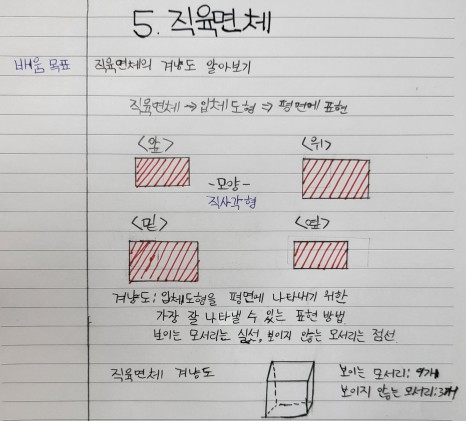 5. 직육면체
배움 목표 직육면체의 겨냥도 알아보기
직육면체 → 입체도형 ⇒ 평면에 표현
<앞> <위>
-모양-
직사각형
<밑> <옆>
겨냥도: 입체도형을 평면에 나타내기 위한
가장 잘 나타낼 수 있는 표현 방법
보이는 모서리는 실선, 보이지 않는 모서리는 점선
직육면체 겨냥도 보이는 모서리: 9개
보이지 않는 모서리: 3개